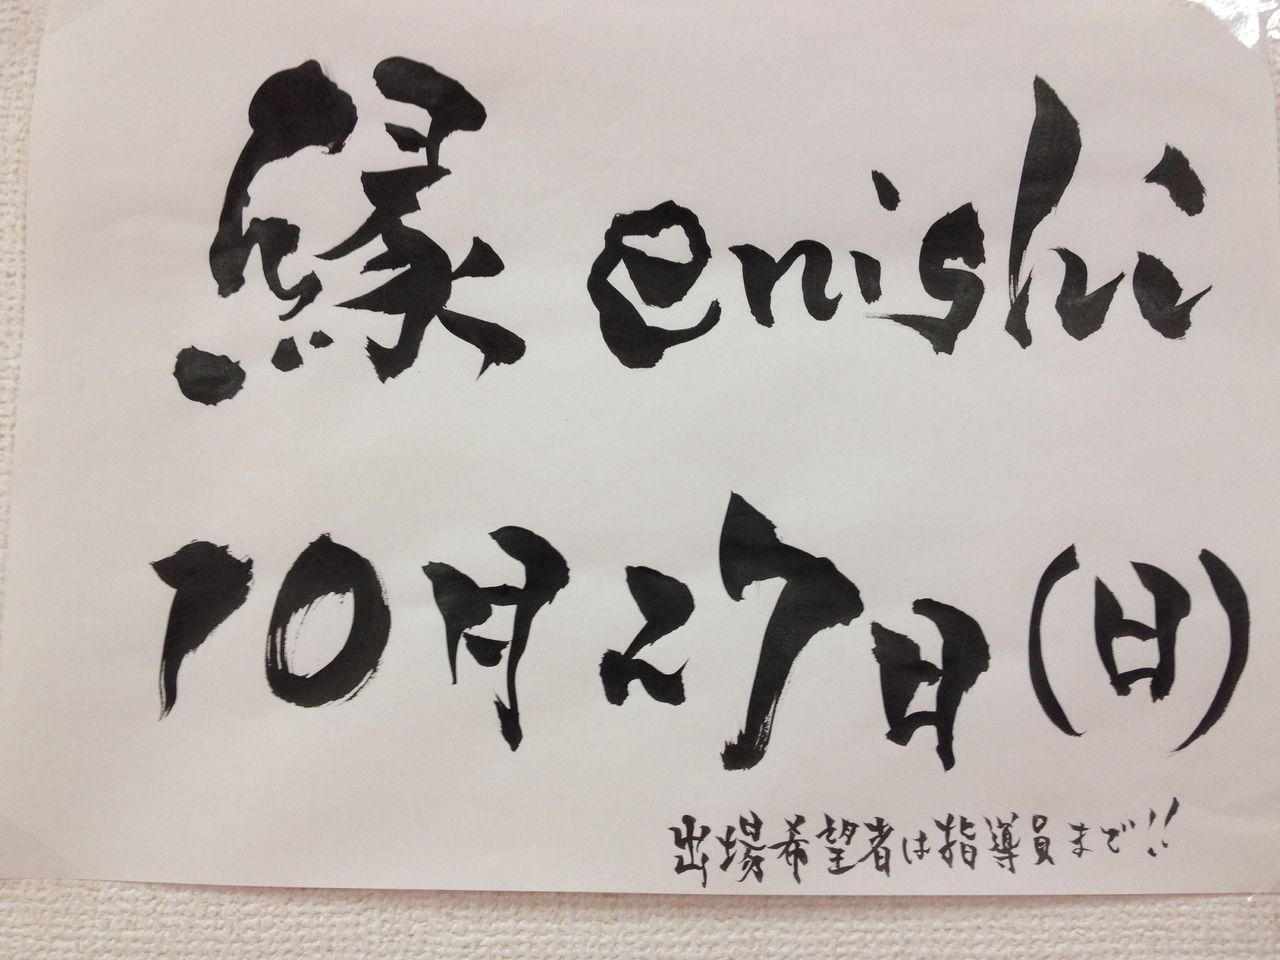 縁 enishi
10月27日(日)
出場希望者は指導員まで!!